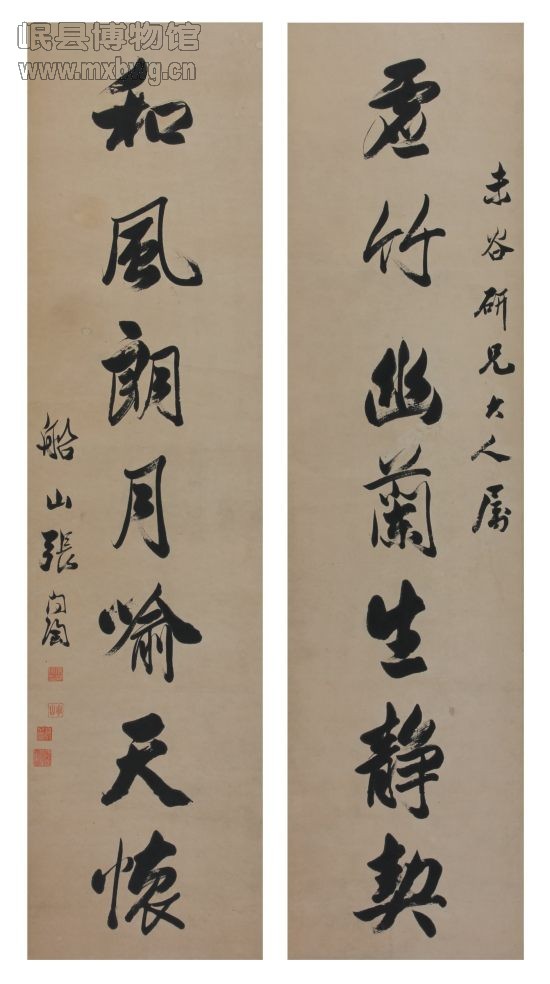 赤谷研兄大人属
虚竹幽蘭生静契
和風朗月喻天懷
船山張问陶
岷县博物馆
www.mxbwg.cn